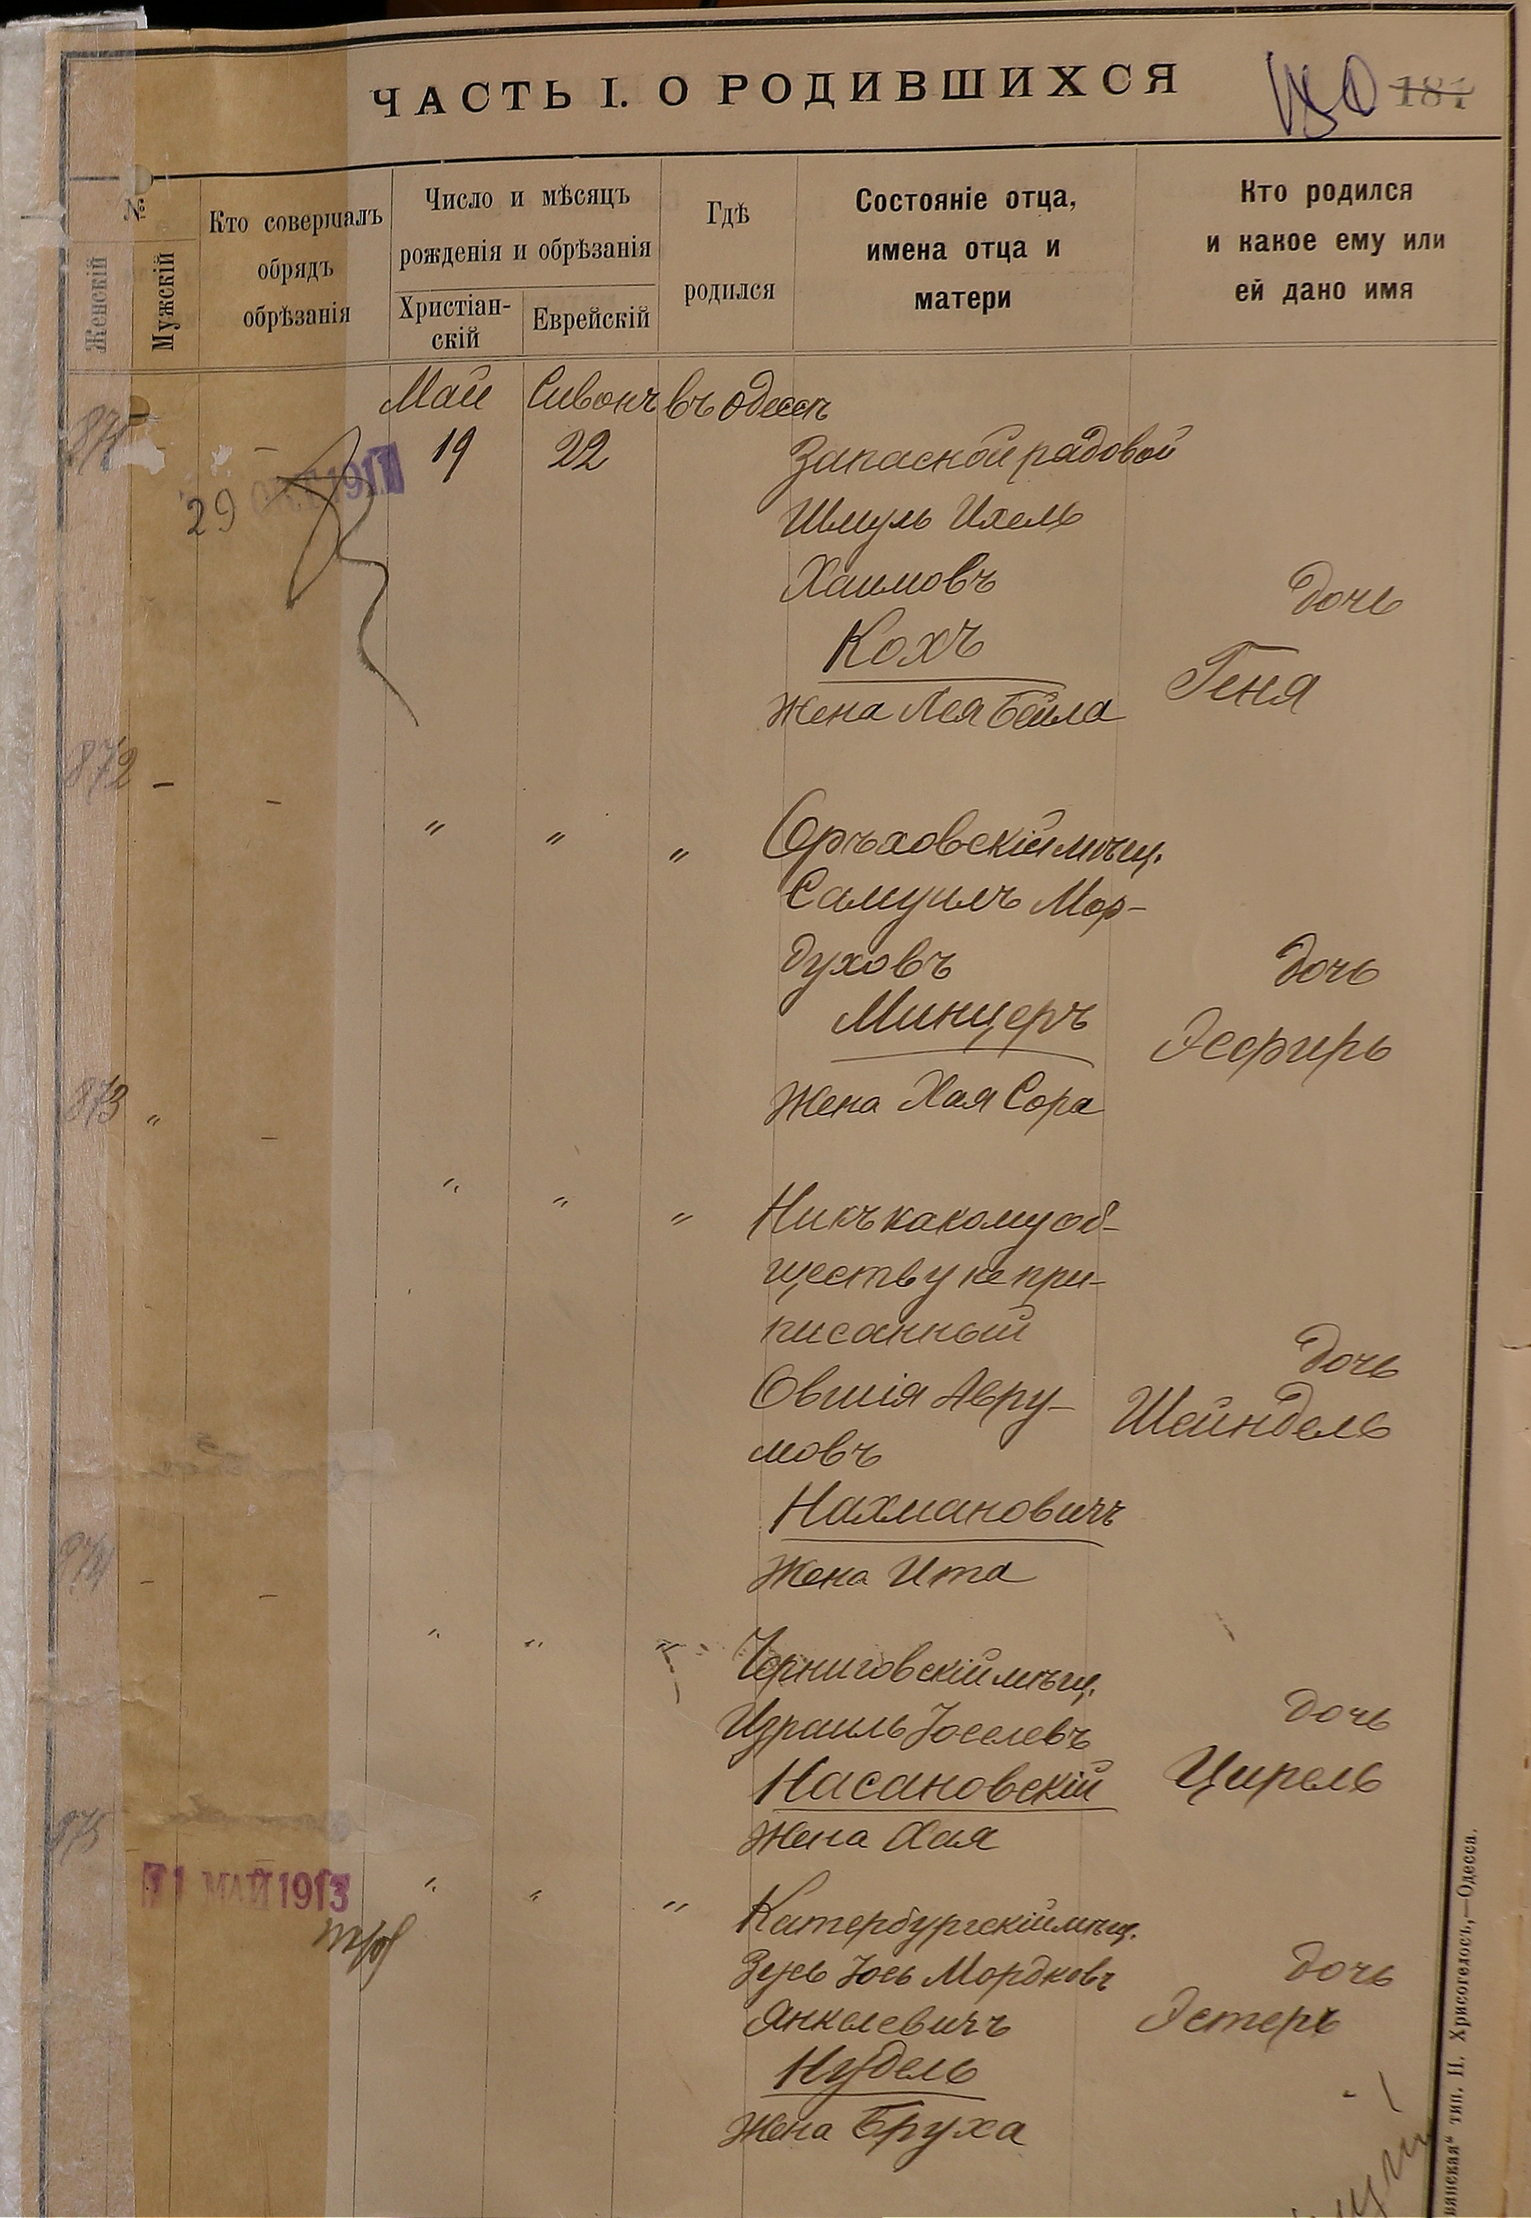 ЧАСТЬ I. О РОДИВШИХСЯ
181
№
Женскій
Мужскій
Кто совершалъ
обрядъ
обрѣзанія
Число и мѣсяцъ
рожденія и обрѣзанія
Христіан-
скій
Еврейскій
Гдѣ
родился
Состояніе отца,
имена отца и
матери
Кто родился
и какое ему или
ей дано имя
Май Сивонъ въ Одессѣ
871 – 19 22 Запасной рядовой
29 ОКТ 1911
Шмуль Ихель
Хаимовъ
дочь
Кохъ
Геня
Жена Лея Бейла
872 – – " " " Орѣховскій мѣщ.
Самуилъ Мор-
духовъ
дочь
Минцеръ
Эсфирь
Жена Хая Сора
873 " – " " " Ни къ какому об-
ществу не при-
писанный
дочь
Овшія Авру-
мовъ
Шейндель
Нахмановичъ
Жена Ита
874 – – " " " Черниговскій мѣщ.
Израиль Іоселевъ
дочь
Насановскій
Цирель
Жена Хая
875
11 МАЙ 1913
" " " Катербургскій мѣщ.
Зусь Іось Мордковъ
дочь
Янкелевичъ
Эстеръ
Нудель
Жена Бруха
вянская" тип. Н. Хрисогелосъ,—Одесса.